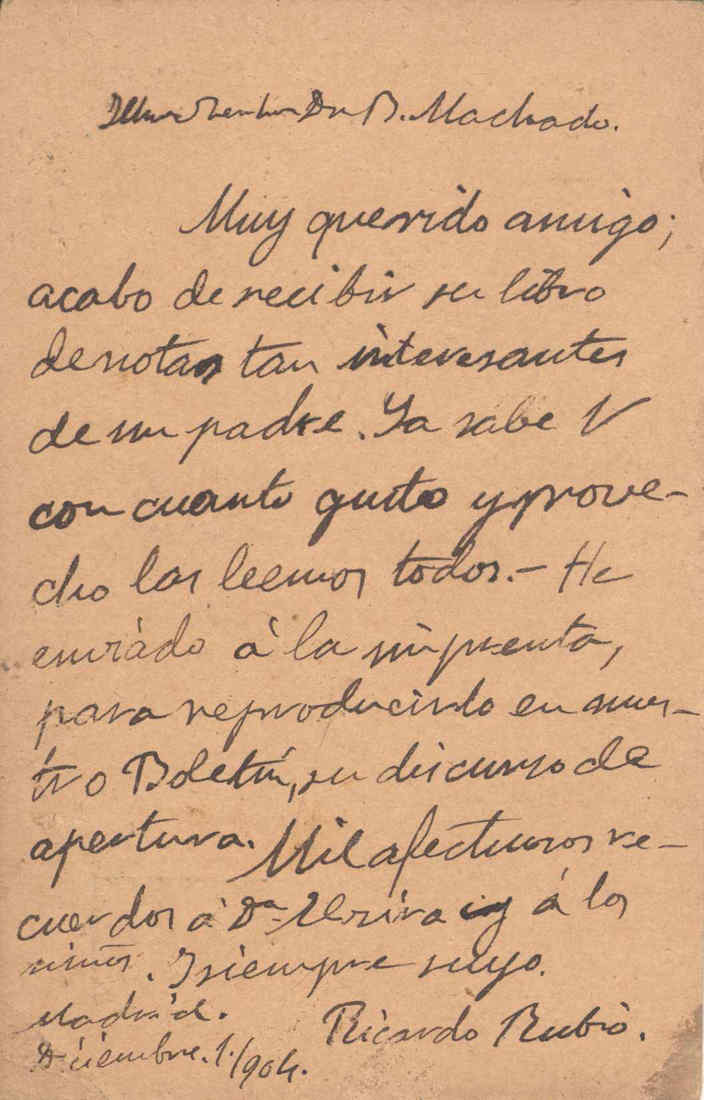 Illmo Senhor Dr B. Machado.
Muy querido amigo;
acabo de recibir su libro
de notas tan interesantes
de un padre. Ya sabe V
con cuanto gusto y prove-
cho las leemos todos.- He
enviado á la imprenta,
para reproducirlo en nues-
tro Boletín, su discurso de
apertura. Mil afectuosos re-
cuerdos á Dª Elzira y á los
niños. Y siempre suyo.
Madrid. Ricardo Rubio.
Diciembre.1./904.